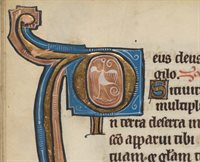 D eus deus
gilo.
Sitiuit
multipl
in terra deserta in
sco apparui tibi
tuam ⁊ glam t